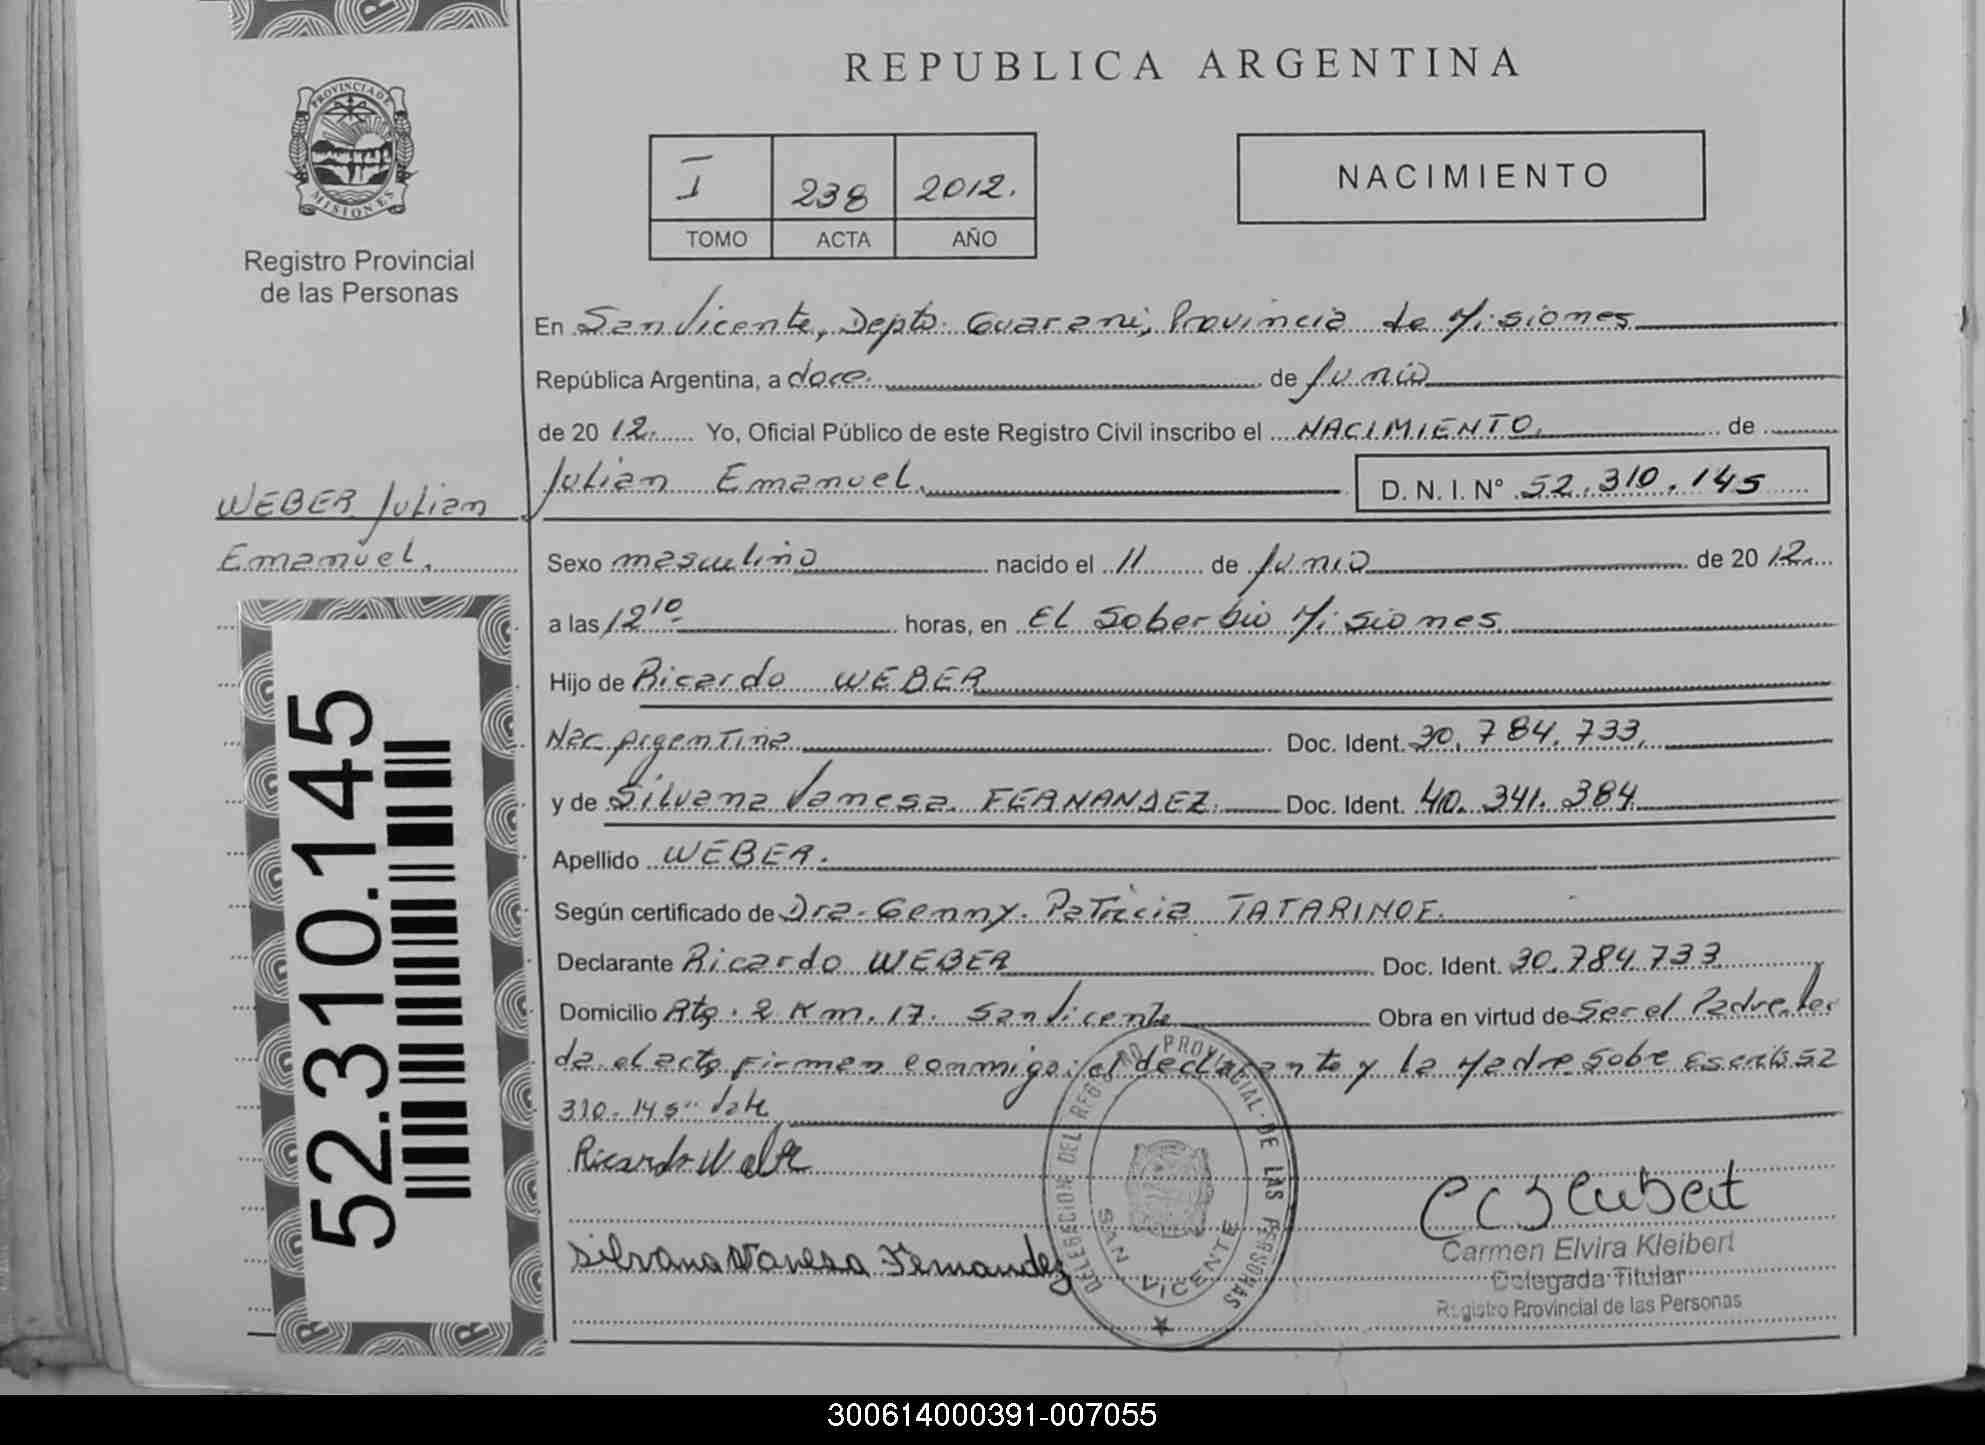 REPUBLICA ARGENTINA
PROVINCIA DE
MISIONES
Registro Provincial
de las Personas
I 238 2012.
TOMO ACTA AÑO
NACIMIENTO
En San Vicente, Depto. Guarani, Provincia de Misiones
República Argentina, a doce. de Junio
de 20 12. Yo, Oficial Público de este Registro Civil inscribo el NACIMIENTO. de
Julian Emanuel. D. N. I. N° 52.310.145
WEBER Julian
Emanuel.
Sexo masculino nacido el 11 de Junio de 20 12.
a las 12 10 horas, en El Soberbio Misiones
Hijo de Ricardo WEBER
Nac. Argentina Doc. Ident. 30.784.733.
y de Silvana Vanesa FERNANDEZ. Doc. Ident. 40.341.384
Apellido WEBER.
Según certificado de Dra. Genny. Patricia TATARINOF.
Declarante Ricardo WEBER Doc. Ident. 30.784.733
Domicilio Rta. 2 Km. 17. San Vicente Obra en virtud de Ser el Padre. Lei
da el acta firman conmigo: el declarante y la Madre. Sobre Escrito 52
310.145" Vale
Ricardo
Silvana Vanesa Fernandez
DELEGACION DEL REGISTRO PROVINCIAL DE LAS PERSONAS
SAN VICENTE
Carmen Elvira Kleibert
Delegada Titular
Registro Provincial de las Personas
52.310.145
300614000391-007055